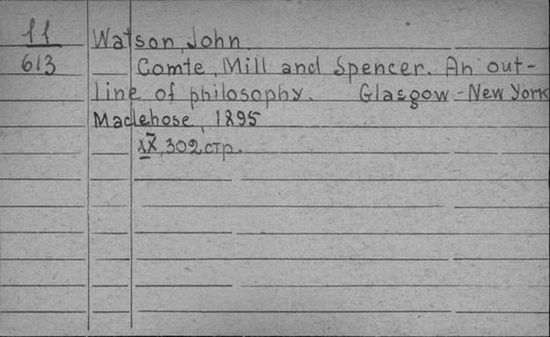 11
613
Watson, John
Comte, Mill and Spencer. An out-
line of philosophy. Glasgow - New York
Maclehose, 1895
XX, 302 стр.